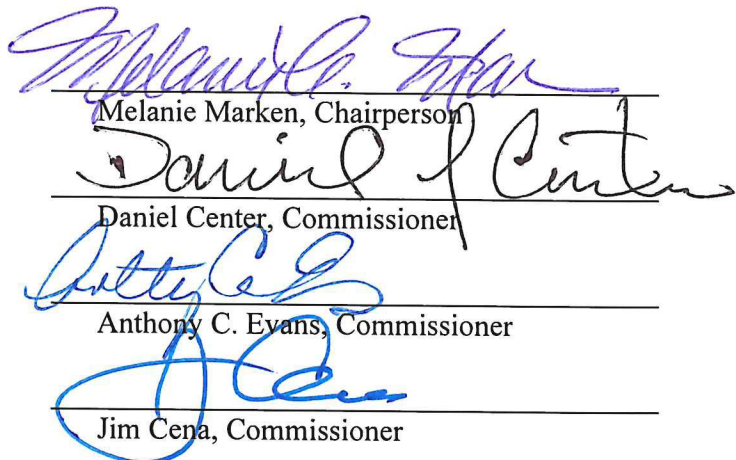 Melanie A.
Melanie Marken, Chairperson
Daniel J Center
Daniel Center, Commissioner
Anthony C. Evans, Commissioner
J Cena
Jim Cena, Commissioner